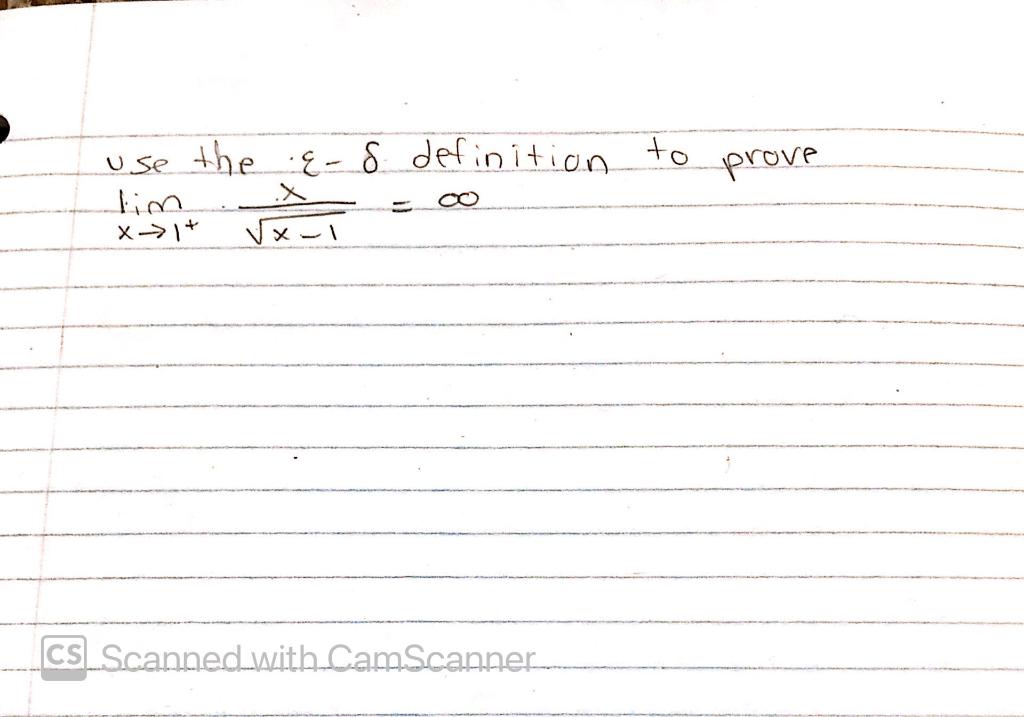 use the ε-δ definition to prove
lim x/√x-1 = ∞
x→1+
CS Scanned with CamScanner